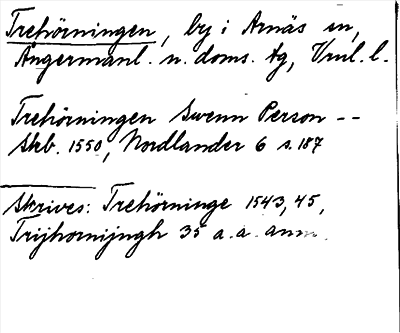 Trehörningen, by i Arnäs sn,
Ångermanl. n. doms. tg, Vnl. l.
Trehörningen Swenn Person --
Skb. 1550, Nordlander 6 s. 187
Skrives: Trehörninge 1543, 45,
Trijhornijngh 35 a. a. anm.